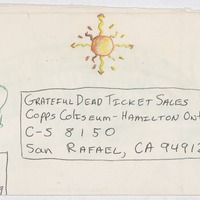 GRATEFUL DEAD TICKET SALES
COPPS COLISEUM - HAMILTON ONT
C-S 8150
SAN RAFAEL, CA 94912